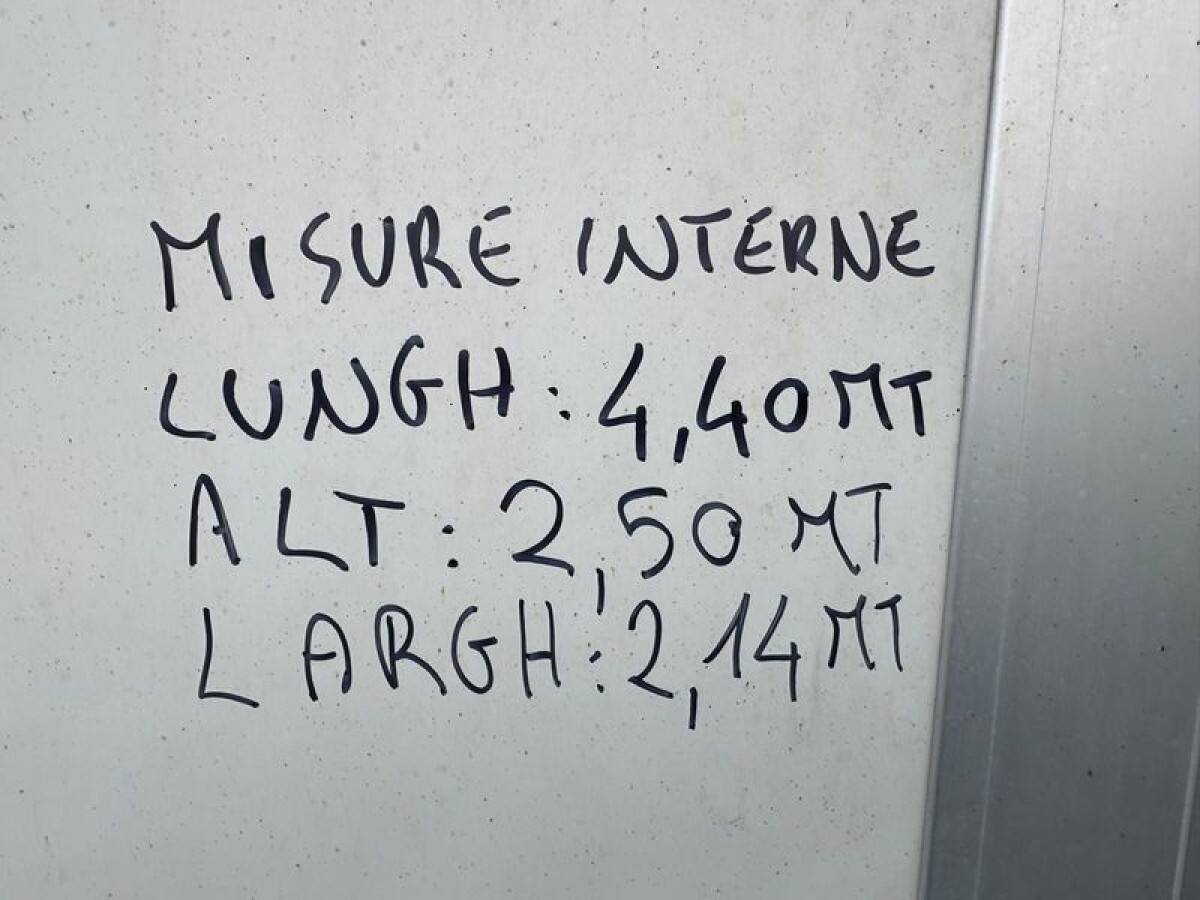 MISURE INTERNE
LUNGH: 4,40 MT
ALT: 2,50 MT
LARGH: 2,14 MT